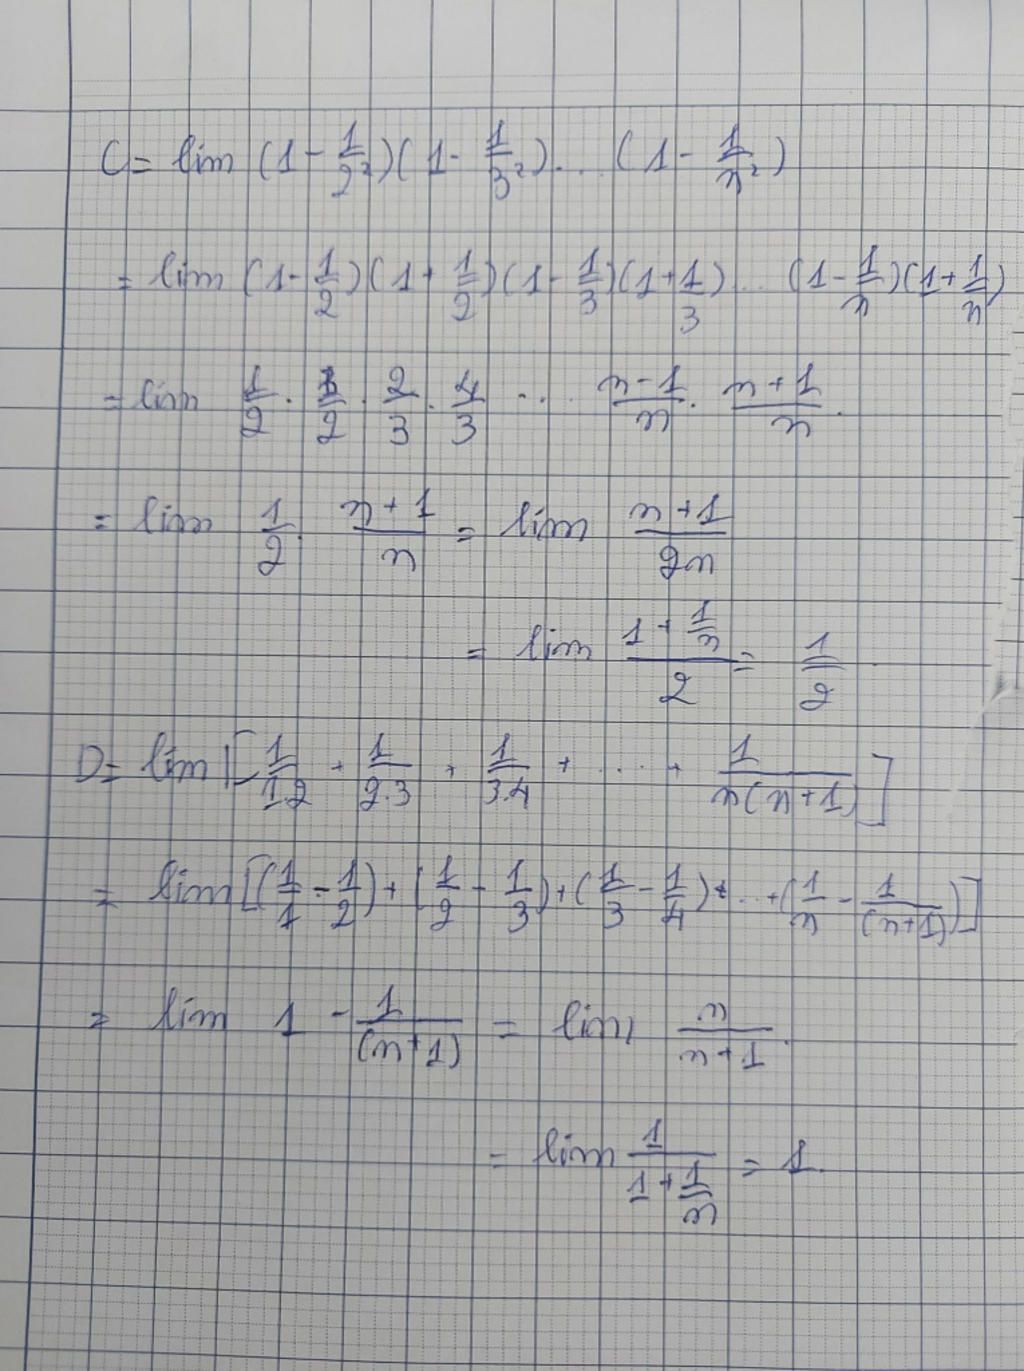 C = lim (1 - 1/2²)(1 - 1/3²)... (1 - 1/n²)
= lim (1 - 1/2)(1 + 1/2)(1 - 1/3)(1 + 1/3)... (1 - 1/n)(1 + 1/n)
= lim 1/2 . 3/2 . 2/3 . 4/3 ... n-1/n . n+1/n .
= lim 1/2 . n+1/n = lim n+1/2n
= lim 1 + 1/n / 2 = 1/2
D = lim [1/1.2 + 1/2.3 + 1/3.4 + .... + 1/n(n+1)]
= lim [(1/1 - 1/2) + (1/2 - 1/3) + (1/3 - 1/4) + ... + (1/n - 1/(n+1))]
= lim 1 - 1/(n+1) = lim n/n+1 .
= lim 1/1 + 1/n = 1.